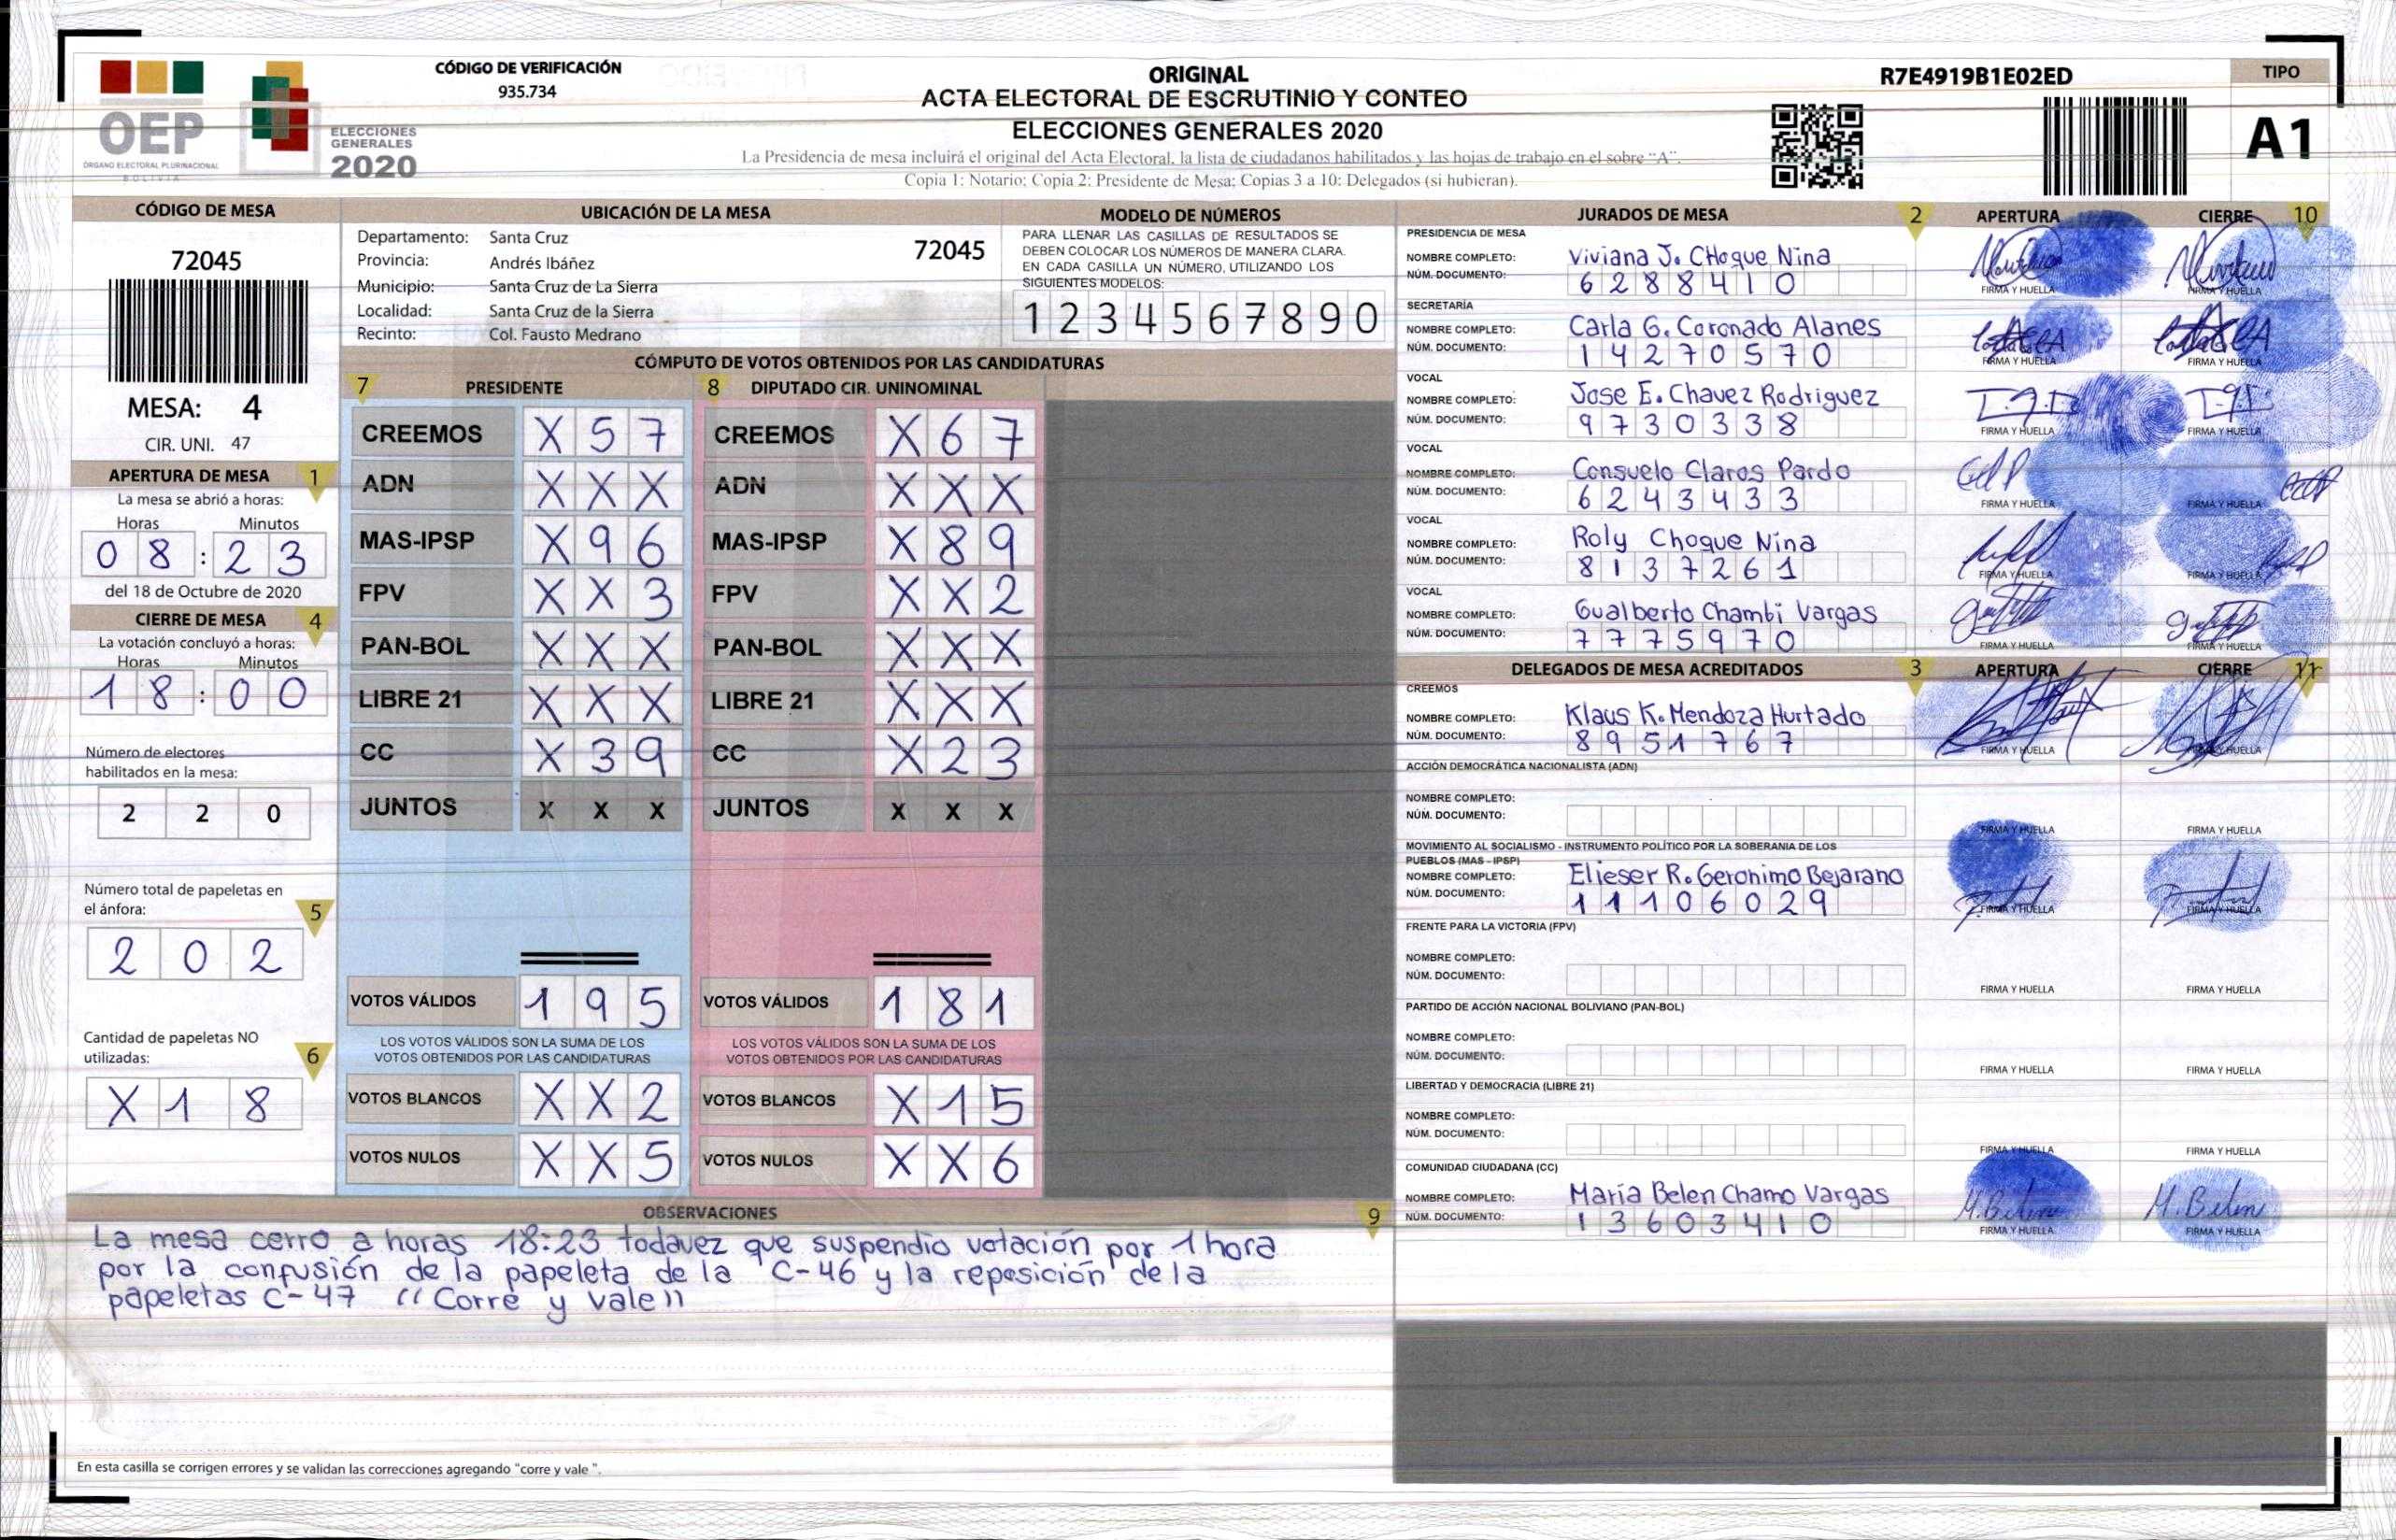 CÓDIGO DE VERIFICACIÓN
935.734
OEP
ÓRGANO ELECTORAL PLURINACIONAL
BOLIVIA
ELECCIONES
GENERALES
2020
ORIGINAL
ACTA ELECTORAL DE ESCRUTINIO Y CONTEO
ELECCIONES GENERALES 2020
La Presidencia de mesa incluirá el original del Acta Electoral, la lista de ciudadanos habilitados y las hojas de trabajo en el sobre "A".
Copia 1: Notario; Copia 2: Presidente de Mesa; Copias 3 a 10: Delegados (si hubieran).
R7E4919B1E02ED
TIPO
A1
CÓDIGO DE MESA
72045
MESA: 4
CIR. UNI. 47
APERTURA DE MESA 1
La mesa se abrió a horas:
Horas Minutos
0 8 : 2 3
del 18 de Octubre de 2020
CIERRE DE MESA 4
La votación concluyó a horas:
Horas Minutos
1 8 : 0 0
Número de electores
habilitados en la mesa:
2 2 0
Número total de papeletas en
el ánfora: 5
2 0 2
Cantidad de papeletas NO
utilizadas: 6
X 1 8
UBICACIÓN DE LA MESA
Departamento: Santa Cruz 72045
Provincia: Andrés Ibáñez
Municipio: Santa Cruz de La Sierra
Localidad: Santa Cruz de la Sierra
Recinto: Col. Fausto Medrano
MODELO DE NÚMEROS
PARA LLENAR LAS CASILLAS DE RESULTADOS SE
DEBEN COLOCAR LOS NÚMEROS DE MANERA CLARA.
EN CADA CASILLA UN NÚMERO, UTILIZANDO LOS
SIGUIENTES MODELOS:
1 2 3 4 5 6 7 8 9 0
CÓMPUTO DE VOTOS OBTENIDOS POR LAS CANDIDATURAS
7 PRESIDENTE 8 DIPUTADO CIR. UNINOMINAL
CREEMOS X 5 7 CREEMOS X 6 7
ADN X X X ADN X X X
MAS-IPSP X 9 6 MAS-IPSP X 8 9
FPV X X 3 FPV X X 2
PAN-BOL X X X PAN-BOL X X X
LIBRE 21 X X X LIBRE 21 X X X
CC X 3 9 CC X 2 3
JUNTOS X X X JUNTOS X X X
VOTOS VÁLIDOS 1 9 5 VOTOS VÁLIDOS 1 8 1
LOS VOTOS VÁLIDOS SON LA SUMA DE LOS LOS VOTOS VÁLIDOS SON LA SUMA DE LOS
VOTOS OBTENIDOS POR LAS CANDIDATURAS VOTOS OBTENIDOS POR LAS CANDIDATURAS
VOTOS BLANCOS X X 2 VOTOS BLANCOS X 1 5
VOTOS NULOS X X 5 VOTOS NULOS X X 6
OBSERVACIONES 9
La mesa cerro a horas 18:23 todavez que suspendio votación por 1 hora
por la confusión de la papeleta de la C-46 y la reposición de la
papeletas C-47 "Corre y vale"
En esta casilla se corrigen errores y se validan las correcciones agregando "corre y vale ".
JURADOS DE MESA 2 APERTURA CIERRE 10
PRESIDENCIA DE MESA
NOMBRE COMPLETO: Viviana J. CHoque Nina
NÚM. DOCUMENTO: 6 2 8 8 4 1 0
FIRMA Y HUELLA FIRMA Y HUELLA
SECRETARÍA
NOMBRE COMPLETO: Carla G. Coronado Alanes
NÚM. DOCUMENTO: 1 4 2 7 0 5 7 0
FIRMA Y HUELLA FIRMA Y HUELLA
VOCAL
NOMBRE COMPLETO: Jose E. Chavez Rodriguez
NÚM. DOCUMENTO: 9 7 3 0 3 3 8
FIRMA Y HUELLA FIRMA Y HUELLA
VOCAL
NOMBRE COMPLETO: Consuelo Claros Pardo
NÚM. DOCUMENTO: 6 2 4 3 4 3 3
FIRMA Y HUELLA FIRMA Y HUELLA
VOCAL
NOMBRE COMPLETO: Roly Choque Nina
NÚM. DOCUMENTO: 8 1 3 7 2 6 1
FIRMA Y HUELLA FIRMA Y HUELLA
VOCAL
NOMBRE COMPLETO: Gualberto Chambi Vargas
NÚM. DOCUMENTO: 7 7 7 5 9 7 0
FIRMA Y HUELLA FIRMA Y HUELLA
DELEGADOS DE MESA ACREDITADOS 3 APERTURA CIERRE 11
CREEMOS
NOMBRE COMPLETO: Klaus K. Mendoza Hurtado
NÚM. DOCUMENTO: 8 9 5 1 7 6 7
FIRMA Y HUELLA FIRMA Y HUELLA
ACCIÓN DEMOCRÁTICA NACIONALISTA (ADN)
NOMBRE COMPLETO:
NÚM. DOCUMENTO:
FIRMA Y HUELLA FIRMA Y HUELLA
MOVIMIENTO AL SOCIALISMO - INSTRUMENTO POLÍTICO POR LA SOBERANIA DE LOS
PUEBLOS (MAS - IPSP)
NOMBRE COMPLETO: Elieser R. Geronimo Bejarano
NÚM. DOCUMENTO: 1 1 1 0 6 0 2 9
FIRMA Y HUELLA FIRMA Y HUELLA
FRENTE PARA LA VICTORIA (FPV)
NOMBRE COMPLETO:
NÚM. DOCUMENTO:
FIRMA Y HUELLA FIRMA Y HUELLA
PARTIDO DE ACCIÓN NACIONAL BOLIVIANO (PAN-BOL)
NOMBRE COMPLETO:
NÚM. DOCUMENTO:
FIRMA Y HUELLA FIRMA Y HUELLA
LIBERTAD Y DEMOCRACIA (LIBRE 21)
NOMBRE COMPLETO:
NÚM. DOCUMENTO:
FIRMA Y HUELLA FIRMA Y HUELLA
COMUNIDAD CIUDADANA (CC)
NOMBRE COMPLETO: María Belen Chamo Vargas
NÚM. DOCUMENTO: 1 3 6 0 3 4 1 0
M. Belen M. Belen
FIRMA Y HUELLA FIRMA Y HUELLA